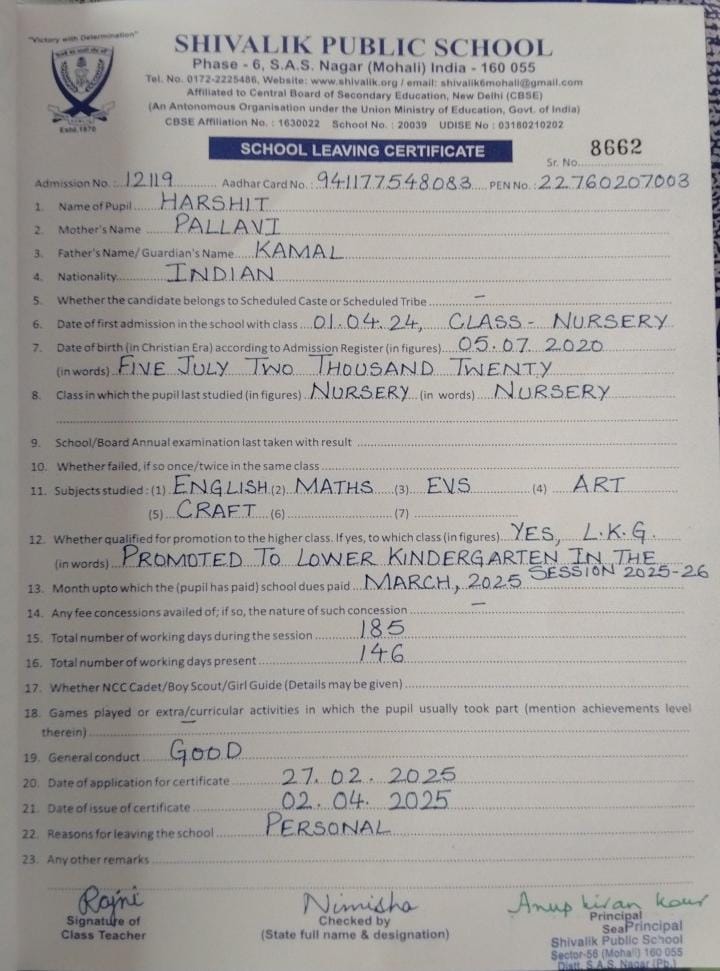 "Victory with Determination"
SHIVALIK PUBLIC SCHOOL
Phase - 6, S.A.S. Nagar (Mohali) India - 160 055
Tel. No. 0172-2225486, Website: www.shivalik.org / email: shivalik6mohali@gmail.com
Affiliated to Central Board of Secondary Education, New Delhi (CBSE)
(An Antonomous Organisation under the Union Ministry of Education, Govt. of India)
CBSE Affiliation No. : 1630022 School No. : 20039 UDISE No : 03180210202
Estd. 1970
SCHOOL LEAVING CERTIFICATE
Sr. No. 8662
Admission No.: 12119 Aadhar Card No.: 941177548083 PEN No.: 22760207003
1. Name of Pupil HARSHIT
2. Mother's Name PALLAVI
3. Father's Name/ Guardian's Name KAMAL
4. Nationality INDIAN
5. Whether the candidate belongs to Scheduled Caste or Scheduled Tribe –
6. Date of first admission in the school with class 01.04.24, CLASS - NURSERY
7. Date of birth (in Christian Era) according to Admission Register (in figures) 05.07.2020
(in words) FIVE JULY TWO THOUSAND TWENTY
8. Class in which the pupil last studied (in figures) NURSERY (in words) NURSERY
9. School/Board Annual examination last taken with result
10. Whether failed, if so once/twice in the same class
11. Subjects studied : (1) ENGLISH (2) MATHS (3) EVS (4) ART
(5) CRAFT (6) (7)
12. Whether qualified for promotion to the higher class. If yes, to which class (in figures) YES, L.K.G.
(in words) PROMOTED TO LOWER KINDERGARTEN IN THE
SESSION 2025-26
13. Month upto which the (pupil has paid) school dues paid MARCH, 2025
14. Any fee concessions availed of; if so, the nature of such concession –
15. Total number of working days during the session 185
16. Total number of working days present 146
17. Whether NCC Cadet/Boy Scout/Girl Guide (Details may be given)
18. Games played or extra/curricular activities in which the pupil usually took part (mention achievements level
therein)
19. General conduct GOOD
20. Date of application for certificate 27.02.2025
21. Date of issue of certificate 02.04.2025
22. Reasons for leaving the school PERSONAL
23. Any other remarks
Rajni Nimisha Anup kiran kour
Signature of Checked by Principal
Class Teacher (State full name & designation) Seal Principal
Shivalik Public School
Sector-56 (Mohali) 160 055
Distt. S.A.S. Nagar (Pb.)